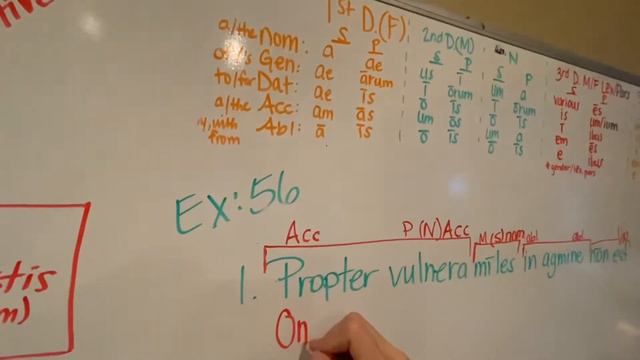 1st D.(F)
S P
a/the Nom: a ae
Gen: ae ārum
to/for Dat: ae īs
a/the Acc: am ās
from Abl: ā īs
2nd D(M) N
S P S P
us ī um a
ī ōrum ī ōrum
ō īs ō īs
um ōs um a
ō īs ō īs
3rd D. M/F
S P
various ēs
is um/ium
ī ibus
em ēs
e ibus
tis
m)
Ex: 56
Acc P(N)Acc M(s)nom abl abl
1. Propter vulnera mīles in agmine nōn est
On